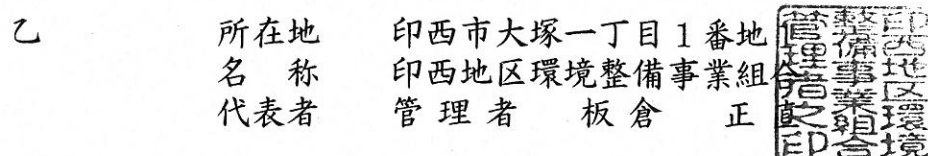 乙 所在地 印西市大塚一丁目1番地
名称 印西地区環境整備事業組合
代表者 管理者 板倉正直
印西地区環境
整備事業組合
管理者之印